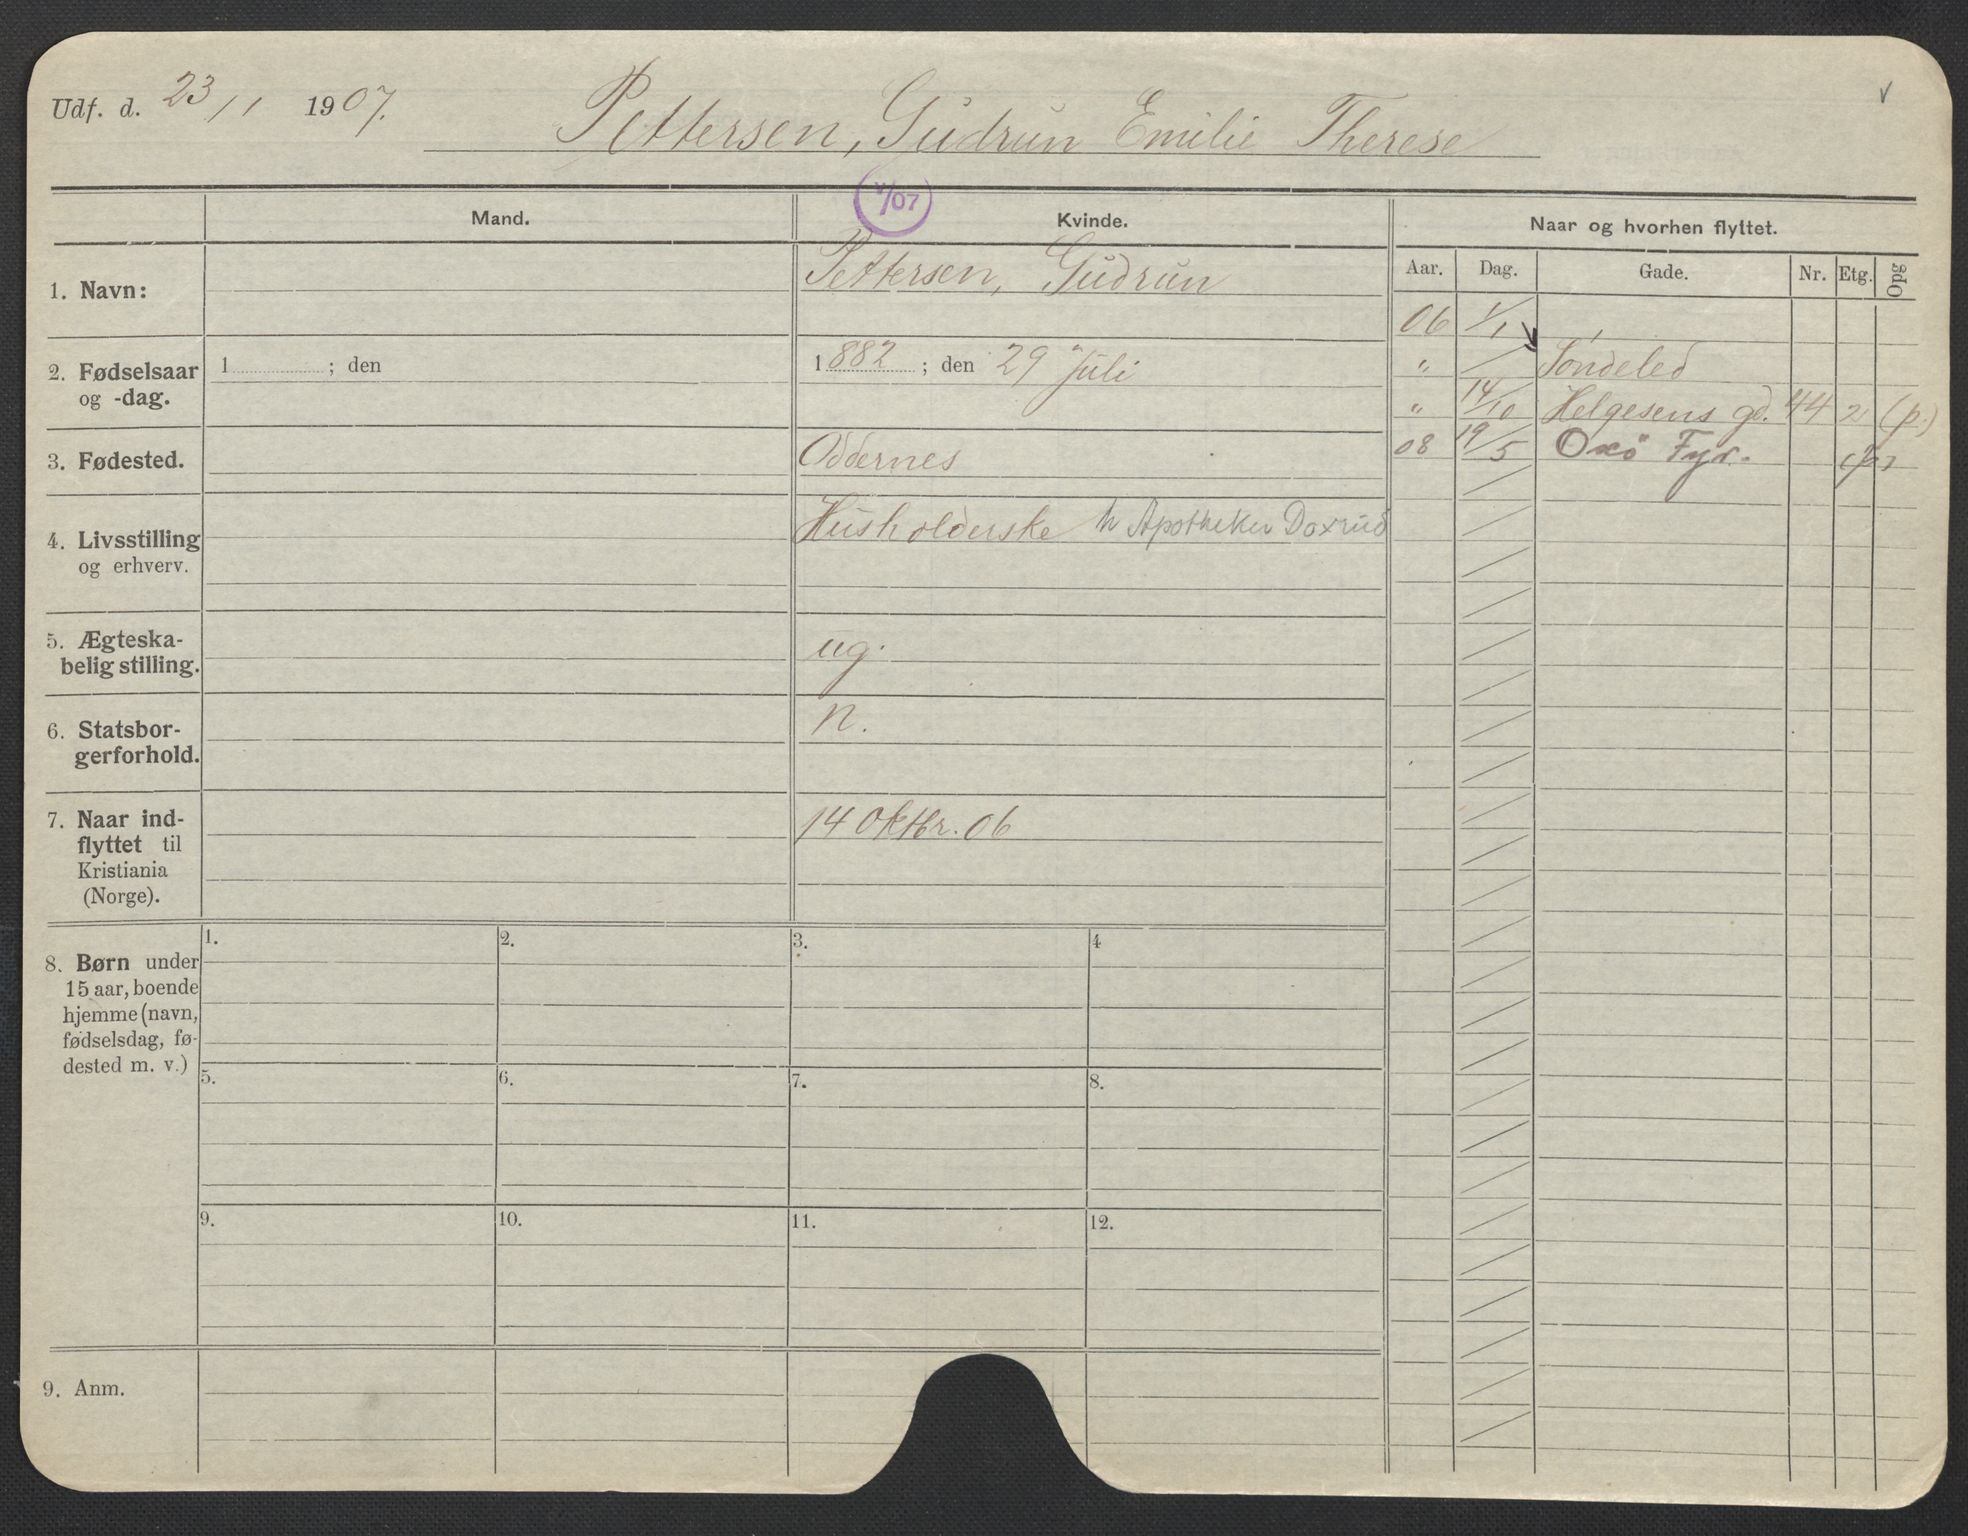 Udf. d. 23/1 1907. Pettersen, Gudrun Emilie Therese
V/07
Mand. Kvinde. Naar og hvorhen flyttet.
Aar. Dag. Gade. Nr. Etg. Opg
1. Navn: Pettersen, Gudrun
06 1/1
2. Fødselsaar 1 ; den 1882 ; den 29 Juli
og -dag.
" Søndeled
" 14/10 Helgesens gd. 44 2 (p.)
3. Fødested. Oddernes
08 19/5 Oxö Fyr. (p)
4. Livsstilling Husholderske h Apotheker Doxrud
og erhverv.
5. Ægteska- ug.
belig stilling.
6. Statsbor- n.
gerforhold.
7. Naar ind- 14 Oktbr. 06
flyttet til
Kristiania
(Norge).
1. 2. 3. 4
8. Børn under
15 aar, boende
hjemme (navn,
fødselsdag, fø-
dested m. v.)
5. 6. 7. 8.
9. 10. 11. 12.
9. Anm.